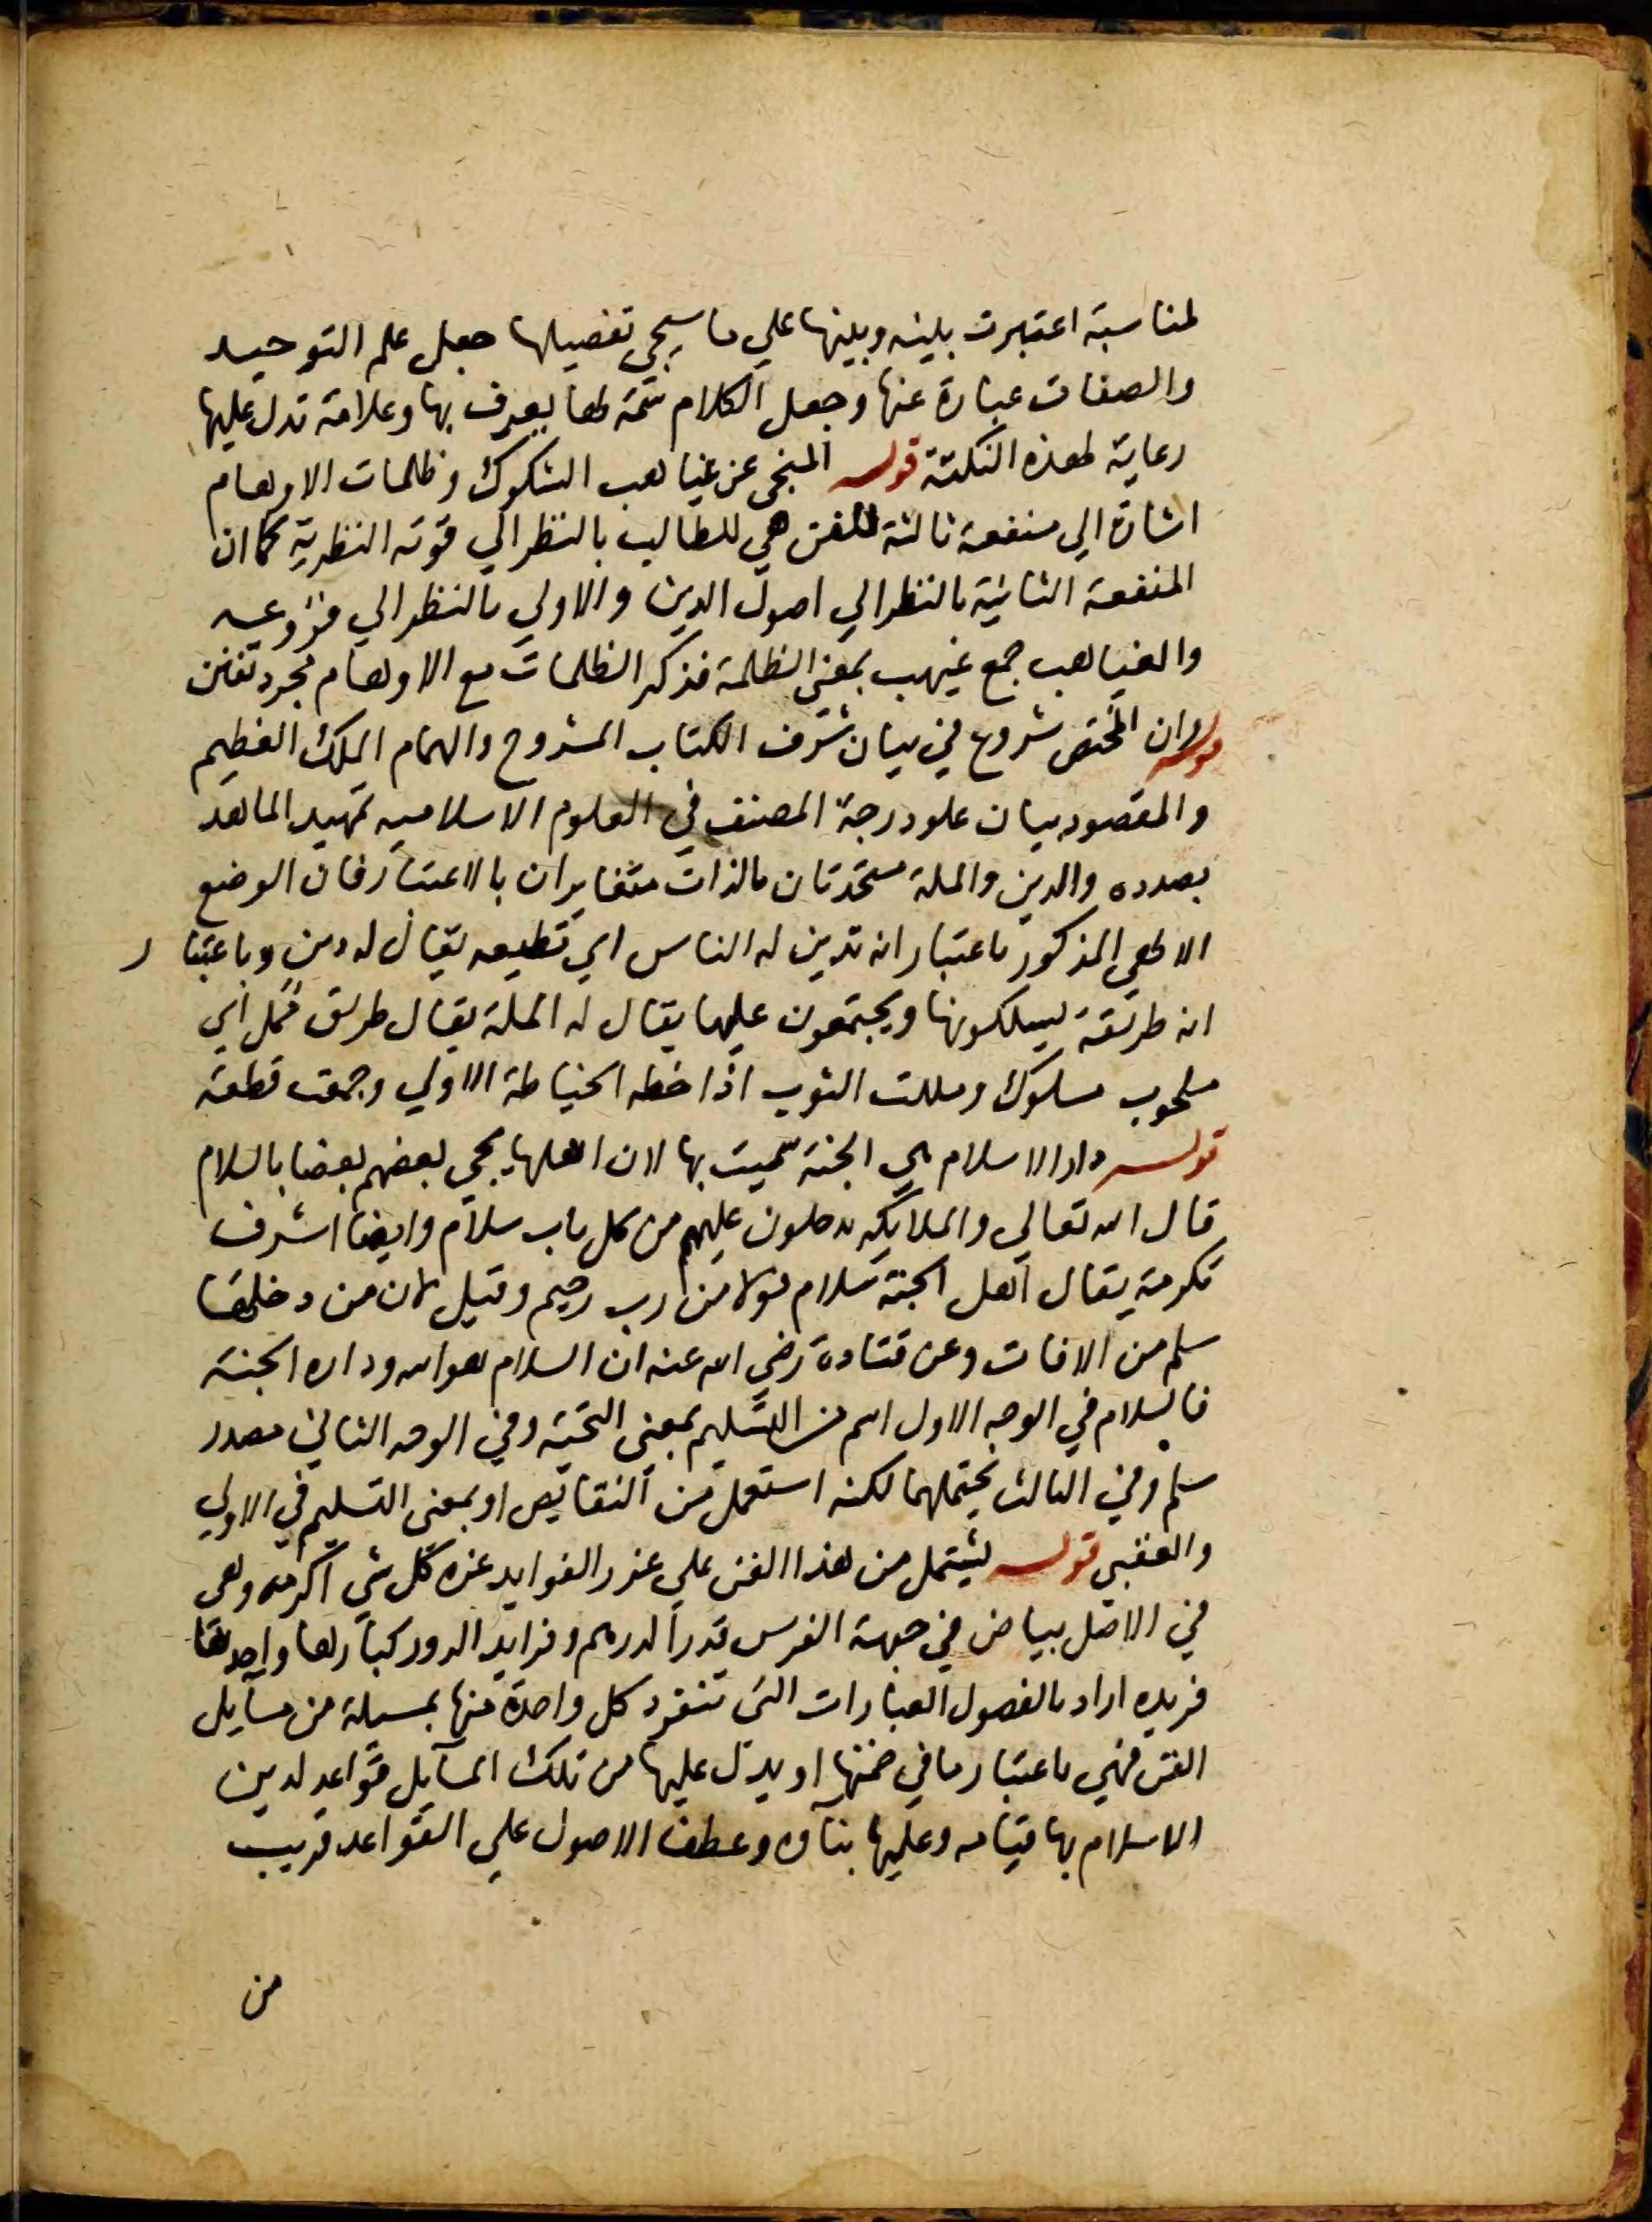 لمناسبة اعتبرت بينه وبينها علي ما سيجي تفصيلها جعل علم التوحيد
والصفات عبارة عنها وجعل الكلام سمة لها يعرف بها وعلامة تدل عليها
رعاية لهذه النكتة قوله المنجي عن غياهب الشكوك وظلمات الاوهام
اشارة الي منفعة ثالثة للفن هي للطالب بالنظر الي قوته النظرية كما ان
المنفعة الثانية بالنظر الي اصول الدين والاولي بالنظر الي فروعه
والغياهب جمع غيهب بمعني الظلمة فذكر الظلمات مع الاوهام مجرد تفنن
قوله وان المختصر شروع في بيان شرف الكتاب المشروح والهمام الملك العظيم
والمقصود بيان علو درجة المصنف في العلوم الاسلاميه تمهيد الما هو
بصدده والدين والملة متحدتان بالذات متغايران بالاعتبار فان الوضع
الالهي المذكور باعتبار انه تدين له الناس اي تطيعه يقال له دين وباعتبار
انه طريقة يسلكونها ويجتمعون عليها يقال له الملة يقال طريق ممل اي
ملحوب مسلوك ومللت الثوب اذا خطه الخياطة الاولي وجمعت قطعة
قوله دار الاسلام هي الجنة سميت بها لان اهلها يحيي بعضهم بعضا بالسلام
قال الله تعالي والملايكه يدخلون عليهم من كل باب سلام وايضا اشرف
تكرمة يقال اهل الجنة سلام قولا من رب رحيم وقيل لان من دخلها
سلم من الافات وعن قتادة رضي الله عنه ان السلام هو الله وداره الجنة
فالسلام في الوجه الاول اسم من التسليم بمعني التحية وفي الوجه الثاني مصدر
سلم وفي الثالث يحتملهما لكنه استعمل من النقايص او بمعني التسليم في الاولي
والعقبي قوله ليشتمل من هذا الفن علي غرر الفوايد غرة كل شي اكرمه وهي
في الاصل بياض في جبهة الفرس قدر الدرهم وفرايد الدرر كبارها واحدتها
فريده اراد بالفصول العبارات التي تنفرد كل واحدة منها بمسيلة من مسايل
الفن فهي باعتبار ما في ضمنها او يدل عليها من تلك المسايل قواعد لدين
الاسلام بها قيامه وعليها بناوه وعطف الاصول علي القواعد قريب
من